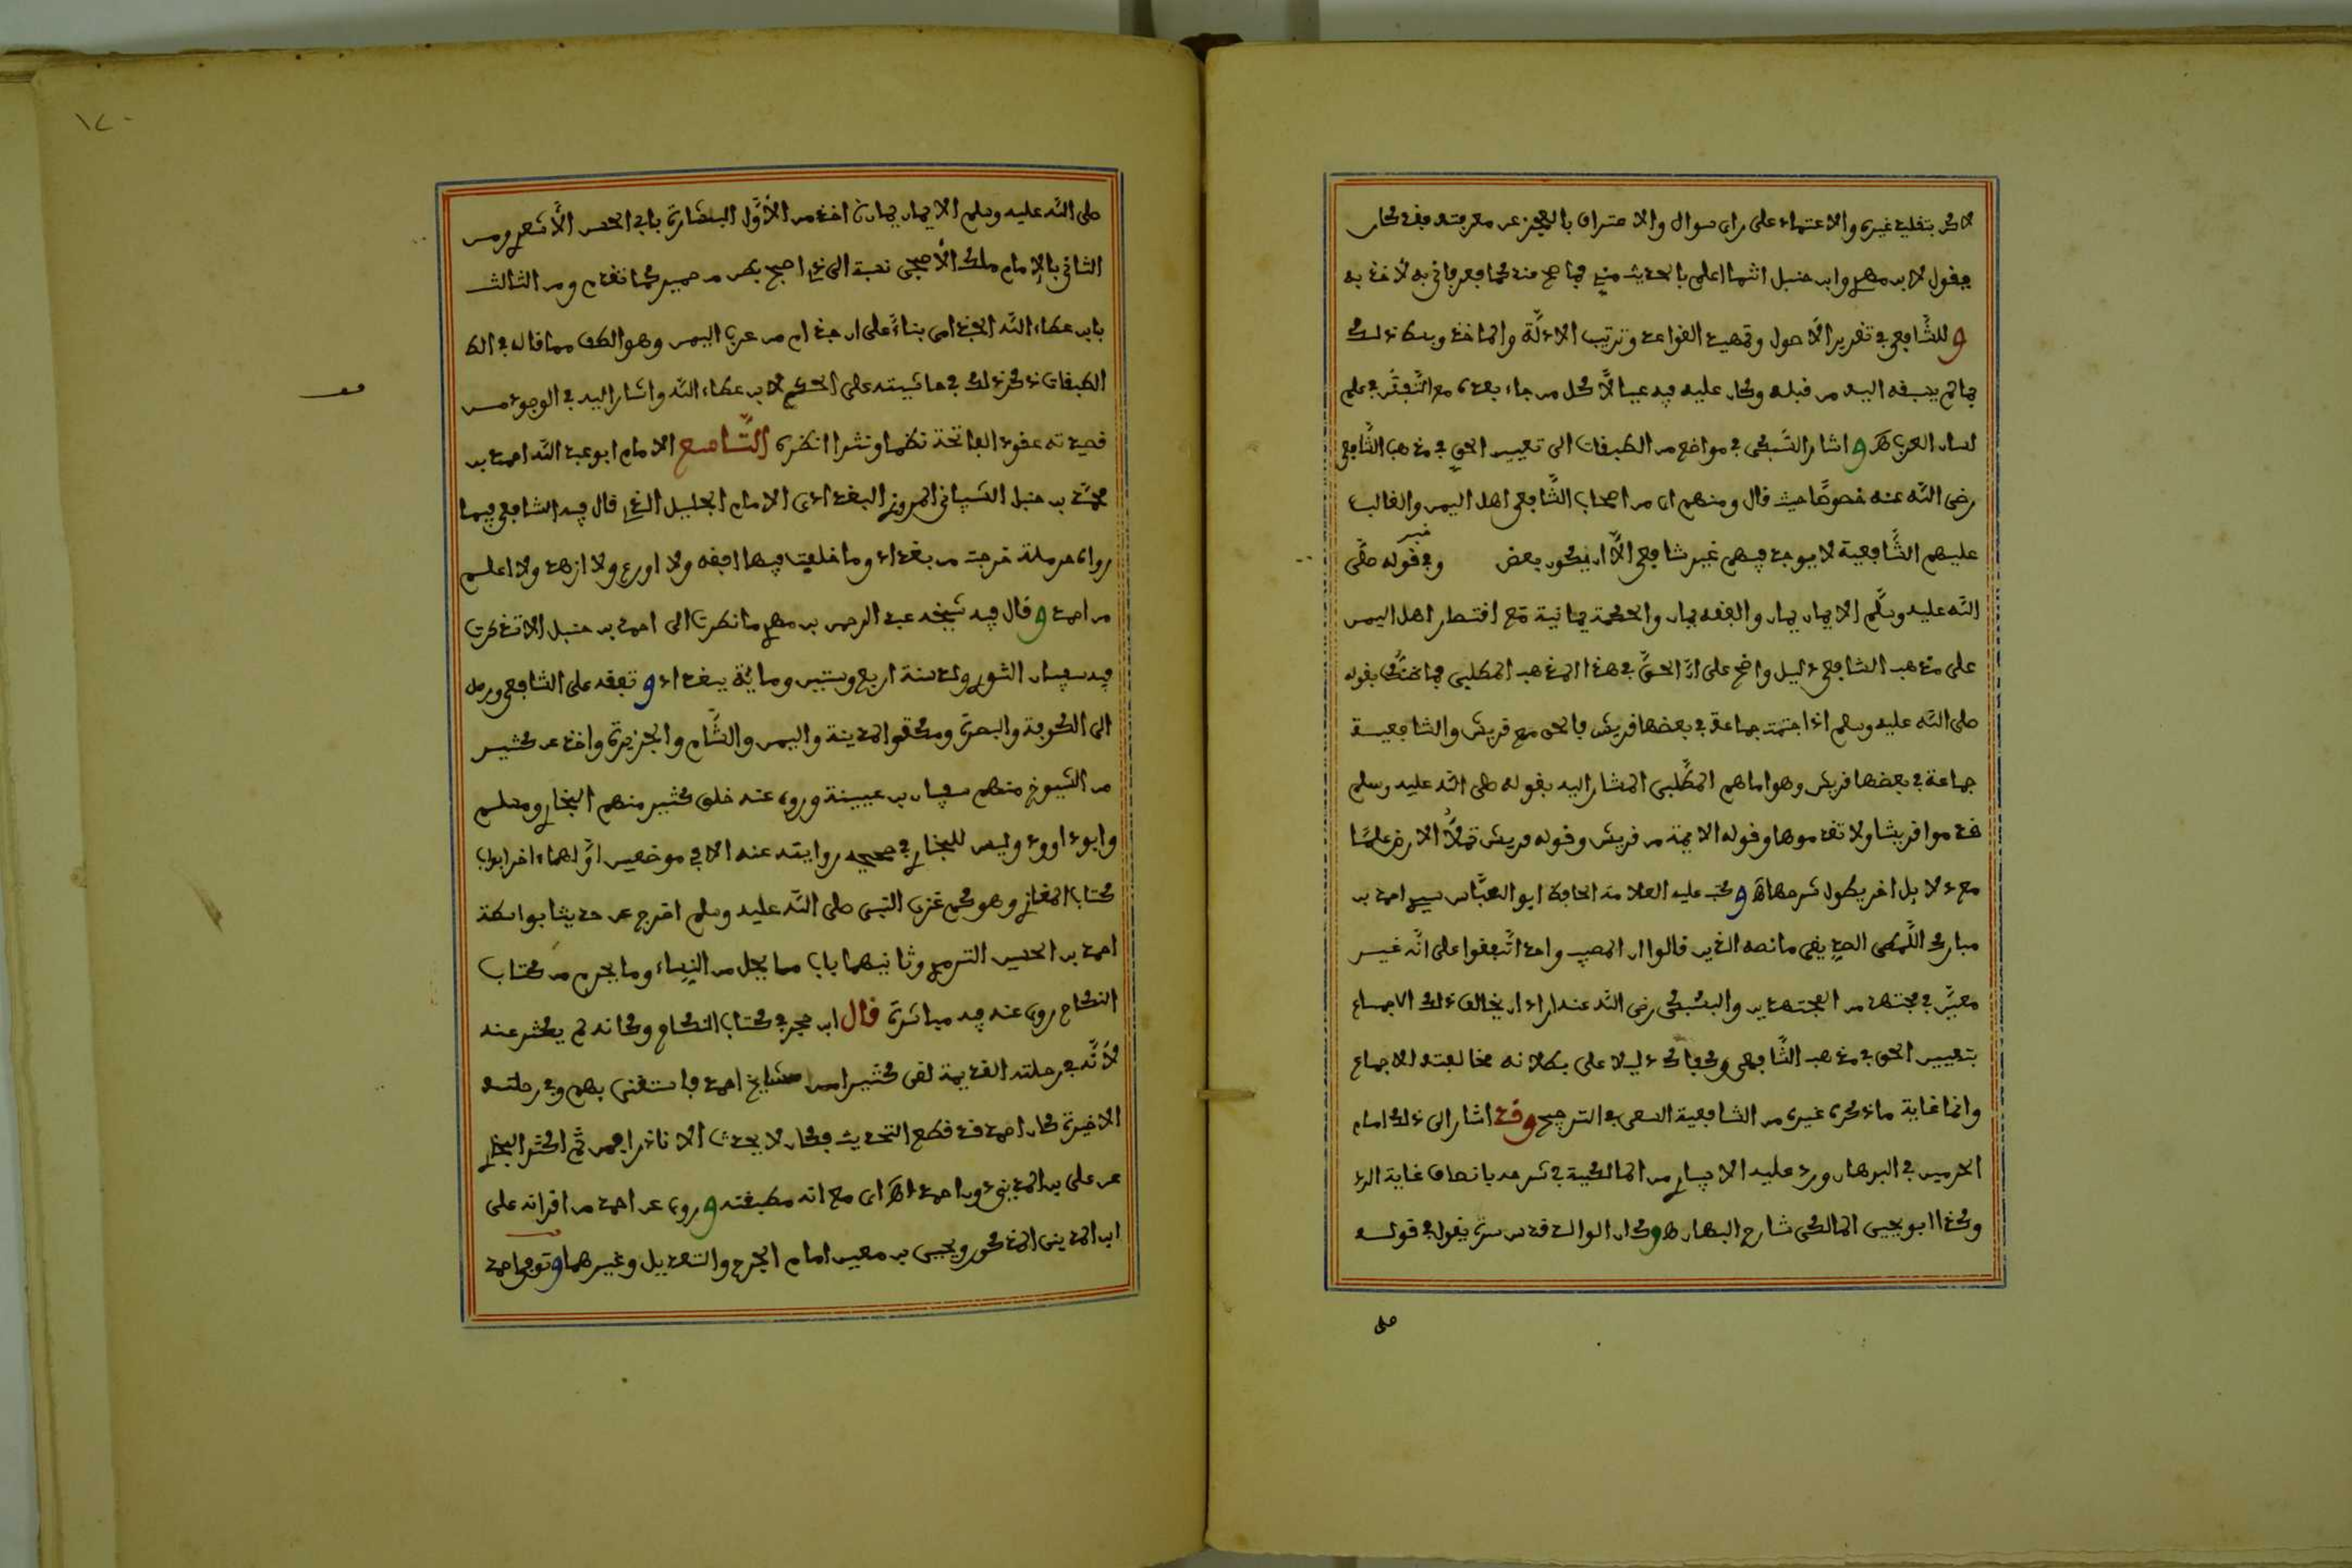 لاكن بتقليد غيره والاعتماد على راى سواك والاعتراف بالعجز عن معرفته فقد كان
يقول لابن مهدي وابن حنبل انتما اعلم بالحديث مني فما صح منه كما فعرفاني به لاخذ به
وللشافعي في تقرير الأصول وتمهيد القواعد وترتيب الادلة والماخذ وبسط ذلك
ما لم يسبقه اليه من قبله وكان عليه فيه عيالا كل من جاء بعده مع التبحر في علم
لسان العرب ه واشار السبكي في مواضع من الطبقات الى تعيين الحق في مذهب الشافعي
رضى الله عنه خصوصا حيث قال ومنهم اى من اصحاب الشافعي اهل اليمن والغالب
عليهم الشافعية لا يوجد فيهم غير شافعي الا ان يكون بعض وفي قوله صلى
الله عليه وسلم الايمان يمان والفقه يمان والحكمة يمانية مع اقتصار اهل اليمن
على مذهب الشافعي دليل واضح على ان الحق في هذا المذهب المطلبي بقوله
صلى الله عليه وسلم اذا اجتمعت جماعة في بعضها قريش فالحق مع قريش والشافعية
جماعة في بعضها قريش وهو امامهم المطلبي المشار اليه بقوله صلى الله عليه وسلم
قدموا قريشا ولا تقدموها وقوله الايمة من قريش وقوله قريش تملأ الارض علما
مع دلايل اخر يطول شرحها اه وكتب عليه العلامة الحافظ ابو العباس سيدي احمد بن
مبارك اللمطى الصديقي ما نصه الذين قالوا ان المصيب واحد اتفقوا على انه غير
معين في مجتهد من المجتهدين والسبكى رضى الله عنه اراد ان يخالف ذلك الاجماع
بتعيين الحق في مذهب الشافعي وكفاك دليلا على بطلانه مخالفته الاجماع
وانما غاية ما ذكره غيره من الشافعية السعى في الترجيح وقد اشار الى ذلك امام
الحرمين في البرهان ورد عليه الابياري من المالكية في شرحه بانصاف غاية الرد
وكذا ابو يحيى المالكي شارح البرهان ه وكان الوالد قدس سره يقول في قوله
صلى
١٢٠
صلى الله عليه وسلم الايمان يمان اخذ من الأول البشارة بابي الحسن الأشعري ومن
الثاني بالامام ملك الأصبحى نسبة الى ذي اصبح بطن من حمير كما تقدم ومن الثالث
بابن عطاء الله الجذامى بناء على ان جذام من عرب اليمن وهو الطف مما قاله في الط
الطبقات ذكر ذلك في حاشيته على الحكم لابن عطاء الله واشار اليه في الوجود من
قصيدته عقود الفاتحة نظما ونثرا انظره التاسع الامام ابو عبد الله احمد بن
محمد بن حنبل الشيباني المروزي البغدادى الامام الجليل الذي قال فيه الشافعي فيما
رواه حرملة خرجت من بغداد وما خلفت فيها افقه ولا اورع ولا ازهد ولا اعلم
من احمد وقال فيه شيخه عبد الرحمن بن مهدي ما نظرت الى احمد بن حنبل الا تذكرت
فيه سفيان الثوري ولد سنة اربع وستين وماية ببغداد وتفقه على الشافعي ورحل
الى الكوفة والبصرة ومكة والمدينة واليمن والشام والجزيرة واخذ عن كثير
من الشيوخ منهم سفيان بن عيينة وروى عنه خلق كثير منهم البخاري ومسلم
وابو داوود وليس للبخاري في صحيحه روايته عنه الا في موضعين اولهما ءاخر ابواب
كتاب المغازي وهو كم غزى النبى صلى الله عليه وسلم اخرج عن حديثا بواسطة
احمد بن الحسن الترمذي وثانيهما باب ما يحل من النساء وما يحرم من كتاب
النكاح روى عنه فيه مباشرة قال ابن حجر في كتاب النكاح وكانه لم يكثر عنه
لأنه في رحلته القديمة لقى كثيرا من مشايخ احمد فاستغنى بهم وفي رحلته
الاخيرة كان احمد قد قطع التحديث فكان لا يحدث الا نادرا فمن ثم اكثر البخاري
عن على بن المديني دون احمد اه اى مع انه من طبقته وروى عن احمد من اقرانه على
ابن المدينى المذكور ويحيى بن معين امام الجرح والتعديل وغيرهما وتوفي احمد